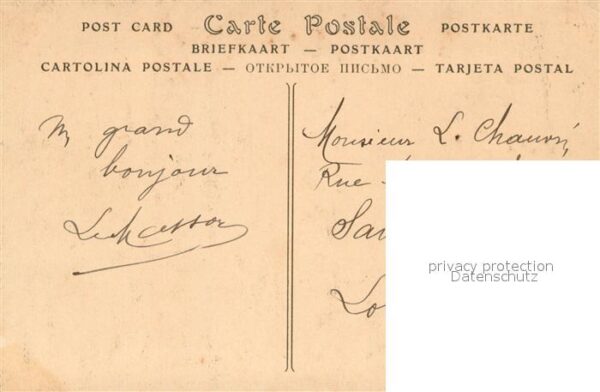 POST CARD Carte Postale POSTKARTE
BRIEFKAART — POSTKAART
CARTOLINA POSTALE — ОТКРЫТОЕ ПИСЬМО — TARJETA POSTAL
grand
bonjour
Monsieur L. Chauvri
Rue
Sau
Lo
privacy protection
Datenschutz